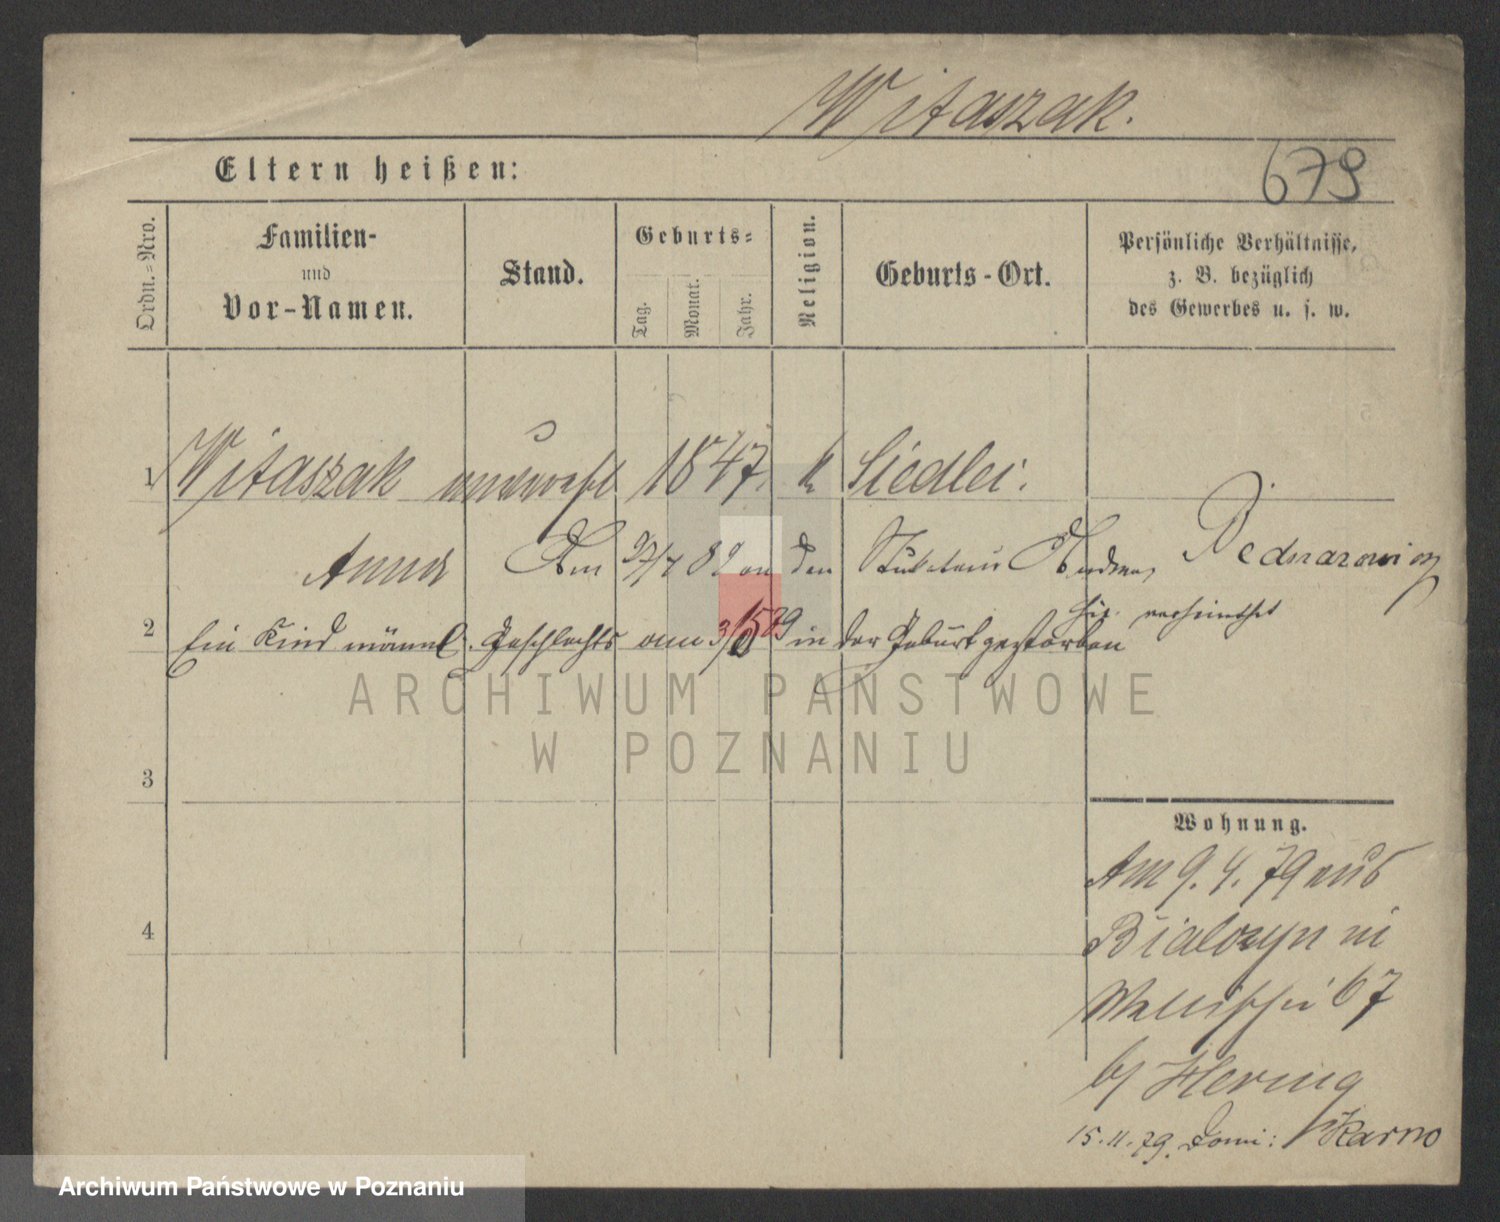 Witaszak.
679
Eltern heißen:
Ordn.=Nro.
Familien-
und
Vor-Namen.
Stand.
Geburts=
Tag.
Monat.
Jahr.
Religion.
Geburts-Ort.
Persönliche Verhältnisse,
z. B. bezüglich
des Gewerbes u. s. w.
1 Witaszak unverehl 1847. k Siedlei.
Anna Am 27/7 82 an den Andreas Bednarowicz
hier verheirathet
2 Ein Kind männl. Geschlechts am 3/5 79 in der Geburt gestorben
3
4
Wohnung.
Am 9. 4. 79 aus
Bialozyn in
Wallischei 67
b/ Hering
15.11.79. Domi: Karno
ARCHIWUM PAŃSTWOWE
W POZNANIU
Archiwum Państwowe w Poznaniu